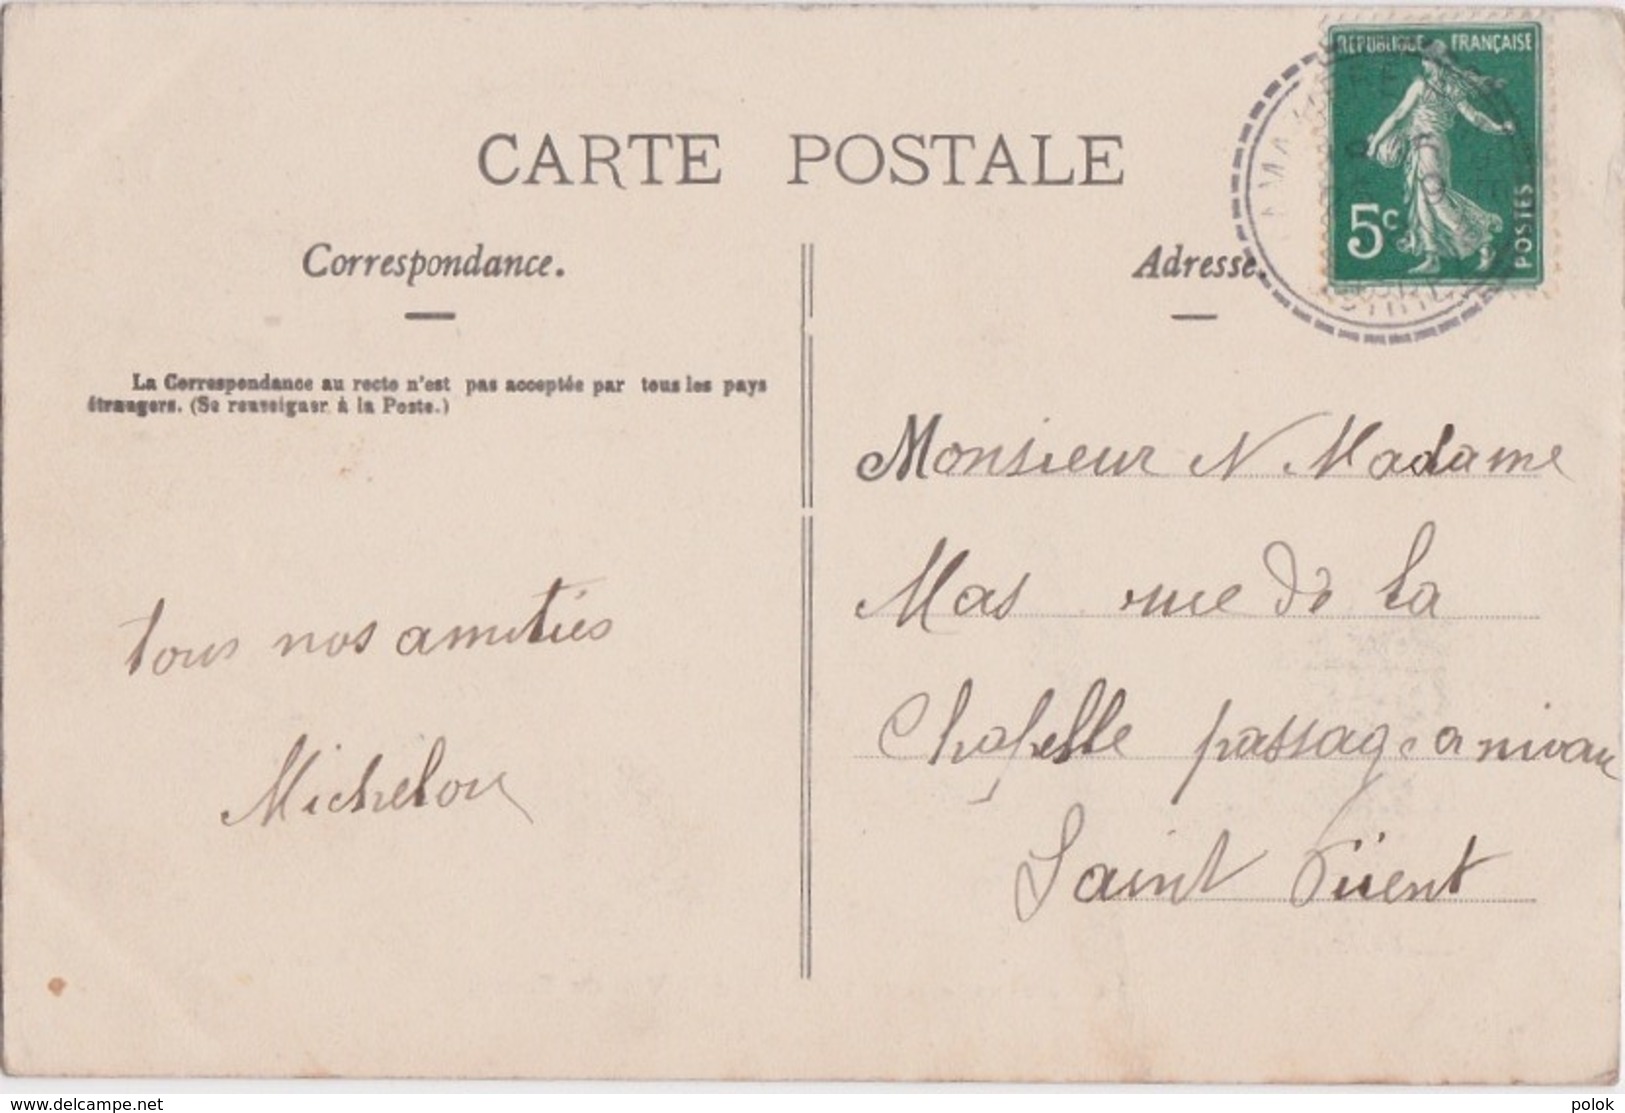 CARTE POSTALE
Correspondance.
Adresse.
REPUBLIQUE FRANÇAISE
5c
POSTES
La Correspondance au recto n'est pas acceptée par tous les pays
étrangers. (Se renseigner à la Poste.)
Monsieur N Madame
Mas rue de la
Chapelle passage a nivau
Saint
tous nos amitiés
Michelon
www.delcampe.net
polok